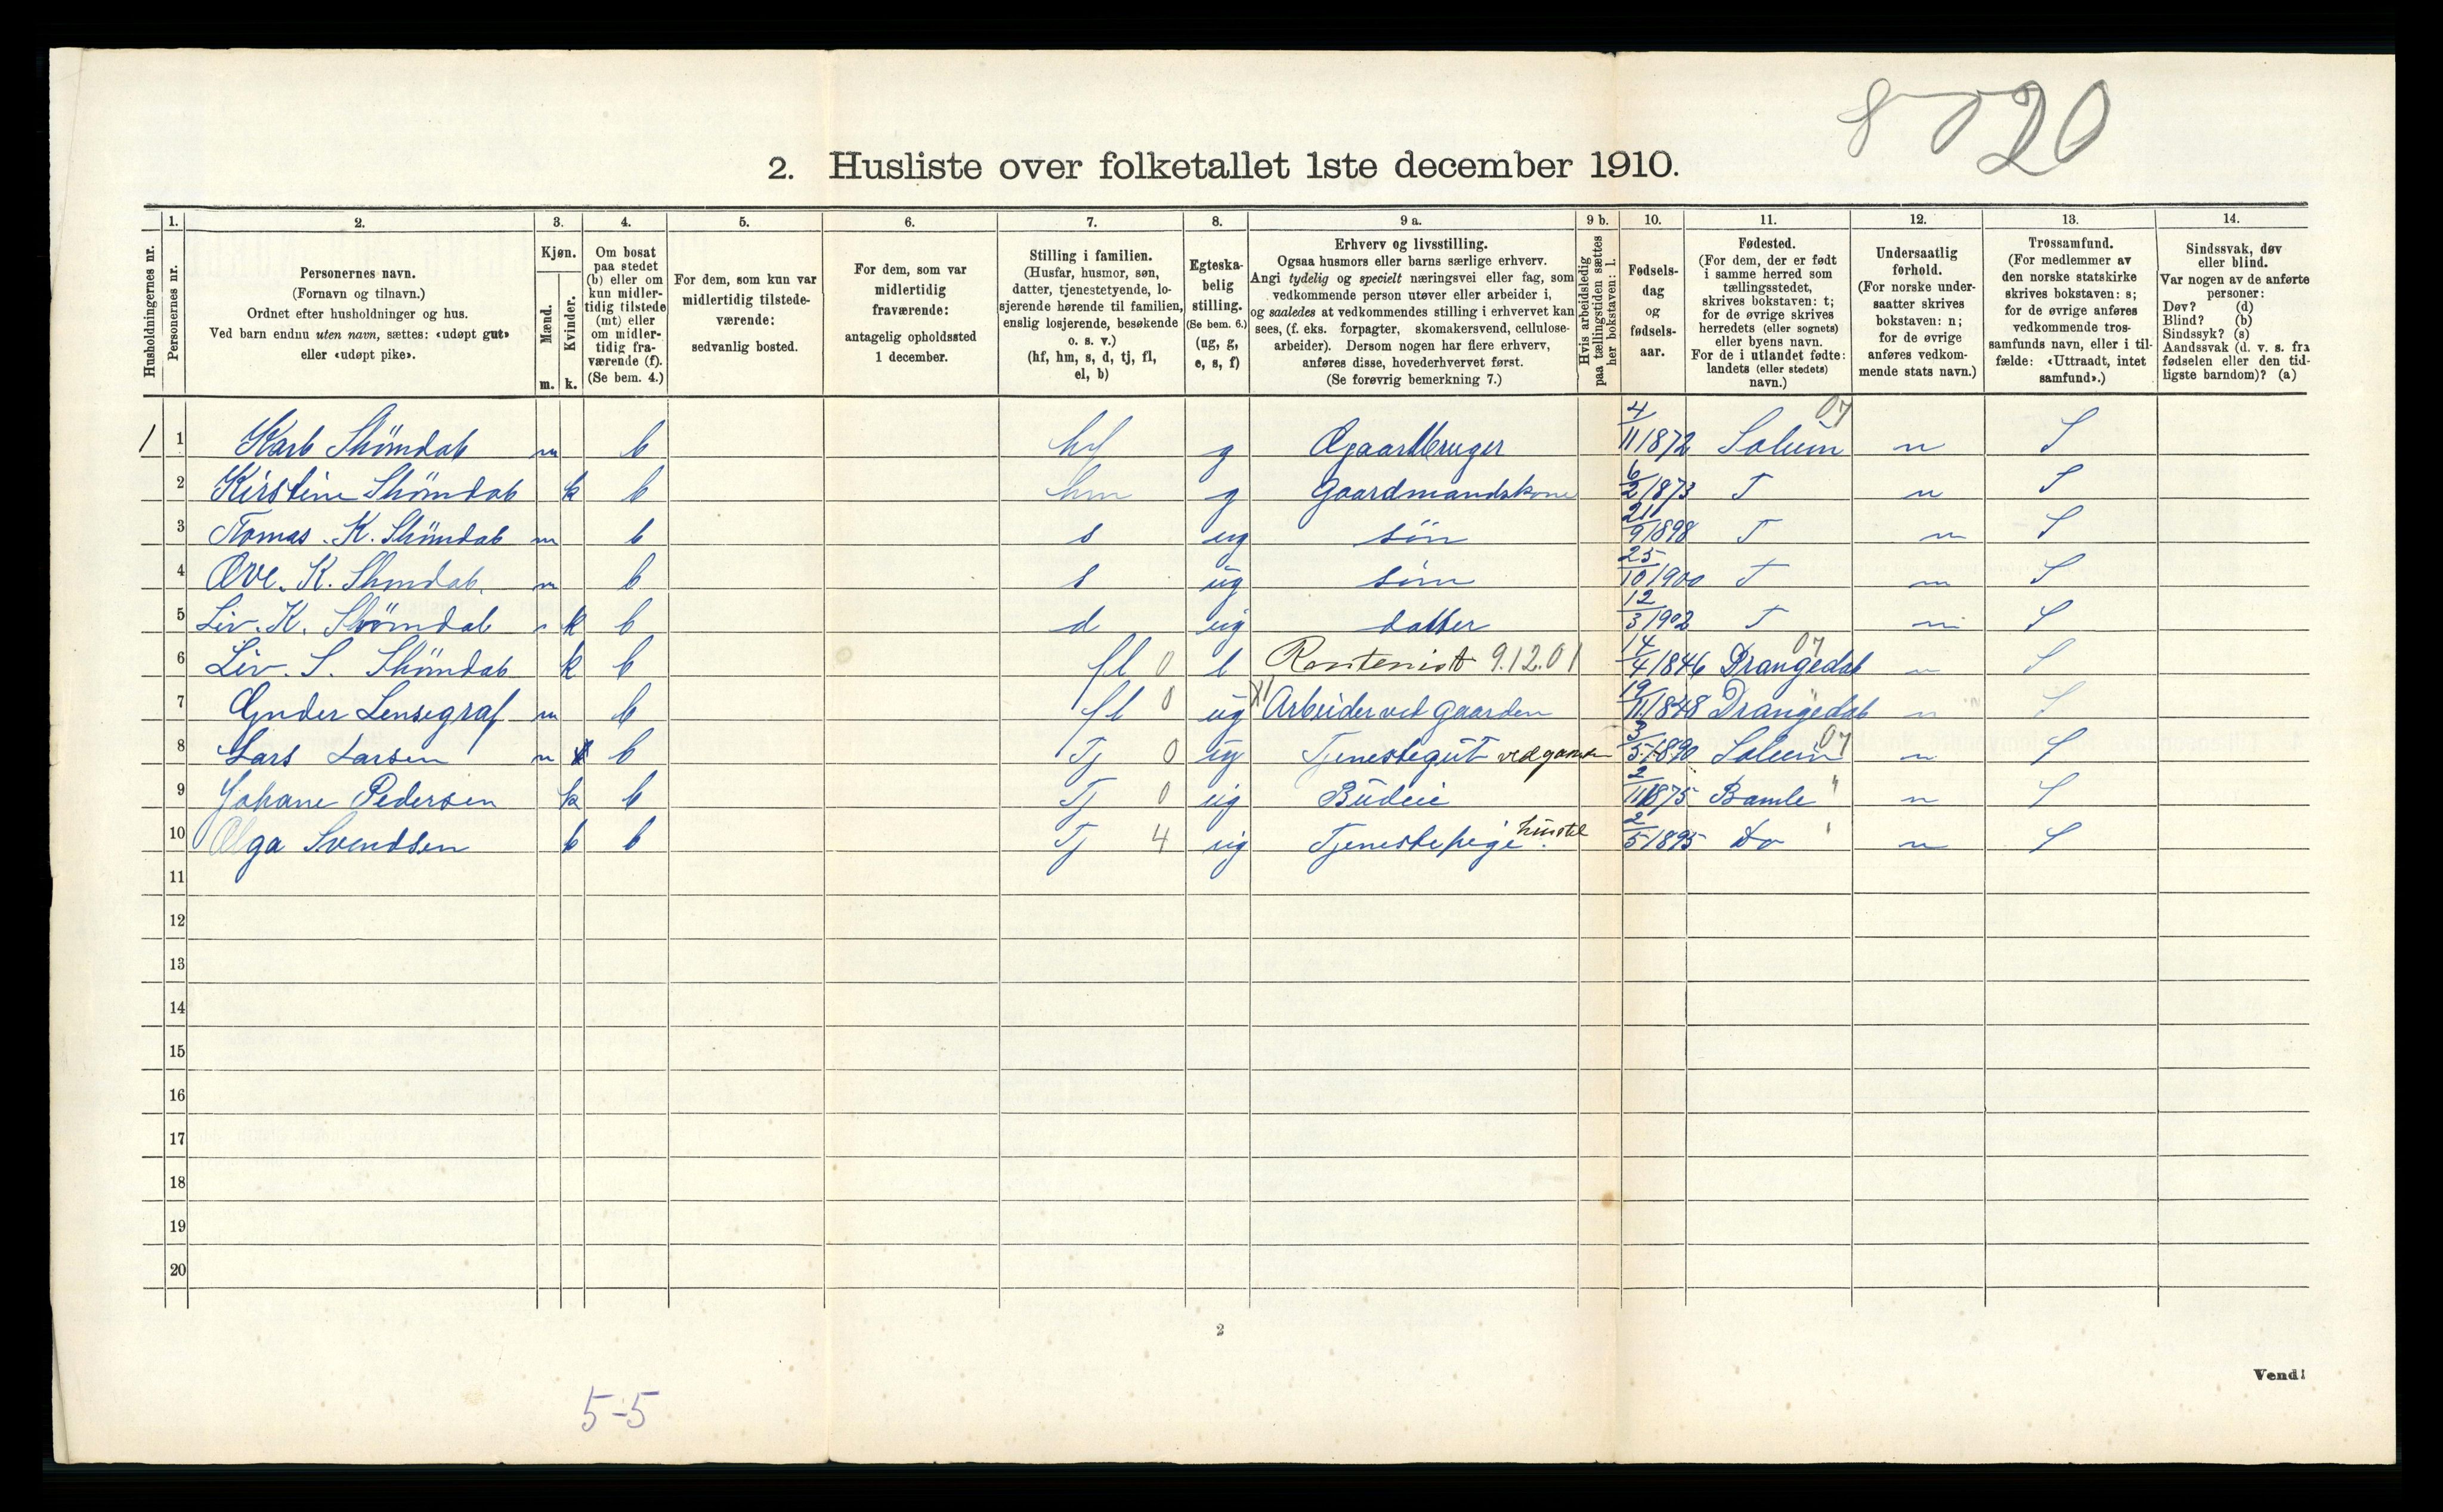 8 20
2. Husliste over folketallet 1ste december 1910.
1. 2. 3. 4. 5. 6. 7. 8. 9 a. 9 b. 10. 11. 12. 13. 14.
Husholdningernes nr.
Personernes nr.
Personernes navn.
(Fornavn og tilnavn.)
Ordnet efter husholdninger og hus.
Ved barn endnu uten navn, sættes: «udøpt gut»
eller «udøpt pike».
Kjøn.
Mænd.
Kvinder.
m. k.
Om bosat
paa stedet
(b) eller om
kun midler-
tidig tilstede
(mt) eller
om midler-
tidig fra-
værende (f).
(Se bem. 4.)
For dem, som kun var
midlertidig tilstede-
værende:
sedvanlig bosted.
For dem, som var
midlertidig
fraværende:
antagelig opholdssted
1 december.
Stilling i familien.
(Husfar, husmor, søn,
datter, tjenestetyende, lo-
sjerende hørende til familien,
enslig losjerende, besøkende
o. s. v.)
(hf, hm, s, d, tj, fl,
el, b)
Egteska-
belig
stilling.
(Se bem. 6.)
(ug, g,
e, s, f)
Erhverv og livsstilling.
Ogsaa husmors eller barns særlige erhverv.
Angi tydelig og specielt næringsvei eller fag, som
vedkommende person utøver eller arbeider i,
og saaledes at vedkommendes stilling i erhvervet kan
sees, (f. eks. forpagter, skomakersvend, cellulose-
arbeider). Dersom nogen har flere erhverv,
anføres disse, hovederhvervet først.
(Se forøvrig bemerkning 7.)
Hvis arbeidsledig
paa tællingstiden sættes
her bokstaven: l.
Fødsels-
dag
og
fødsels-
aar.
Fødested.
(For dem, der er født
i samme herred som
tællingsstedet,
skrives bokstaven: t;
for de øvrige skrives
herredets (eller sognets)
eller byens navn.
For de i utlandet fødte:
landets (eller stedets)
navn.)
Undersaatlig
forhold.
(For norske under-
saatter skrives
bokstaven: n;
for de øvrige
anføres vedkom-
mende stats navn.)
Trossamfund.
(For medlemmer av
den norske statskirke
skrives bokstaven: s;
for de øvrige anføres
vedkommende tros-
samfunds navn, eller i til-
fælde: «Uttraadt, intet
samfund».)
Sindssvak, døv
eller blind.
Var nogen av de anførte
personer:
Døv? (d)
Blind? (b)
Sindssyk? (s)
Aandssvak (d. v. s. fra
fødselen eller den tid-
ligste barndom)? (a)
1 1 Karl Skömdal m b hf g Gaardbruger 4/11 1872 Solum 07 n S
2 Kirstine Skömdal k b hm g Gaardmandskone 6/2 1873 T n S
3 Tomas. K. Skömdal m b s ug sön 21/9 1898 T n S
4 Ove. K. Skmdal. m b s ug sön 25/10 1900 T n S
5 Liv. K. Skömdal k b d ug datter 12/3 1902 T n S
6 Liv. S. Skömdal k b fl 0 e Rentenist 9.12.01 14/4 1846 Drangedal 07 n S
7 Gunder Lensegraf m b fl 0 ug Arbeider ved gaarden 19/11 1848 Drangedal n S
8 Lars Larsen m b Tj 0 ug Tjenestegut ved gaarden 3/5 1890 Solum 07 n S
9 Johane Pedersen k b Tj 0 ug Budeie 2/11 1875 Bamle " n S
10 Olga Svendsen k b Tj 4 ug Tjenestepige husstel 2/5 1895 Do " n S
11
12
13
14
15
16
17
18
19
20
2
Vend!
5-5